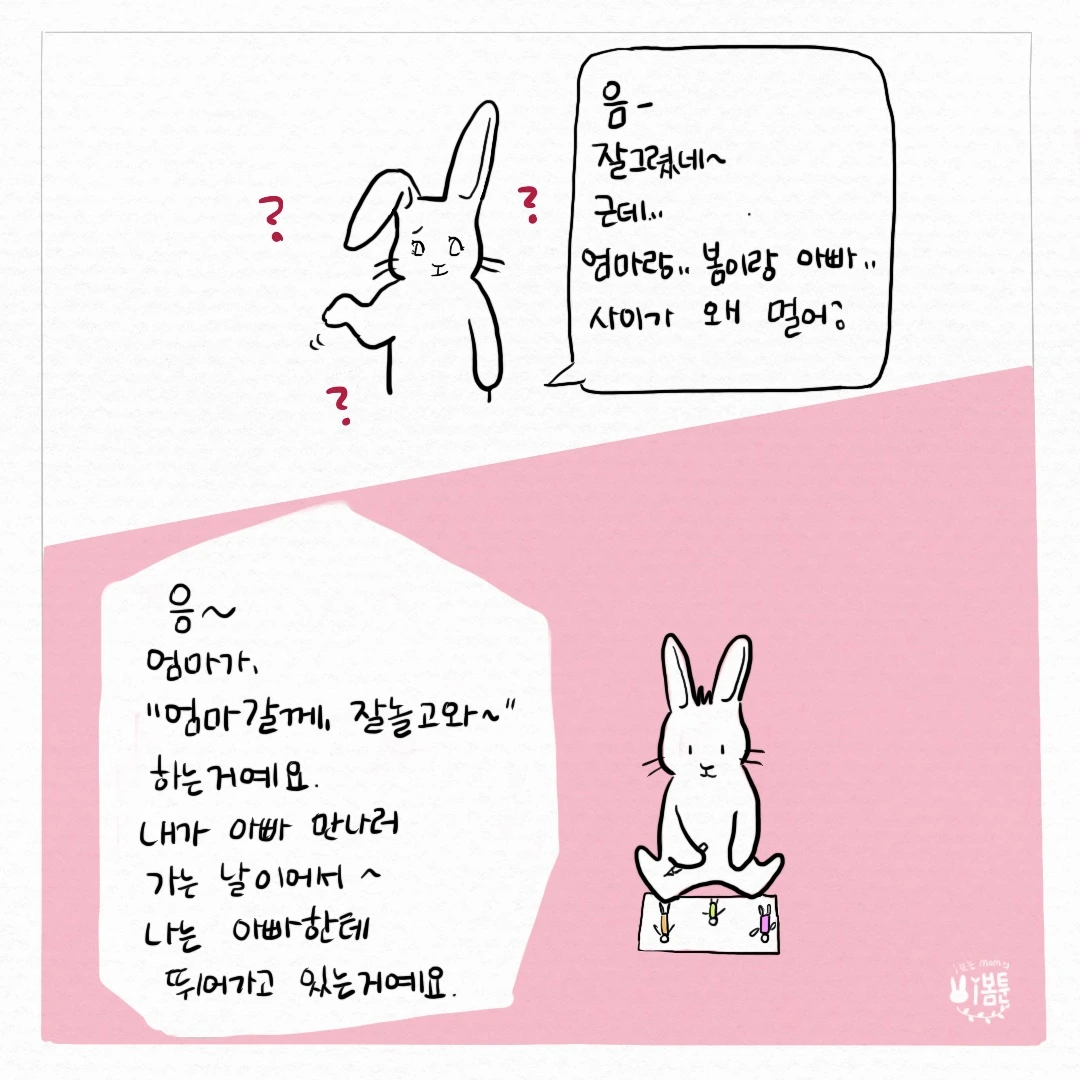 음-
잘그렸네~
근데...
엄마랑.. 봄이랑 아빠..
사이가 왜 멀어?
음~
엄마가,
"엄마갈께, 잘놀고와~"
하는거예요.
내가 아빠 만나러
가는 날이어서 ~
나는 아빠한테
뛰어가고 있는거예요.
?
?
?
봄툰